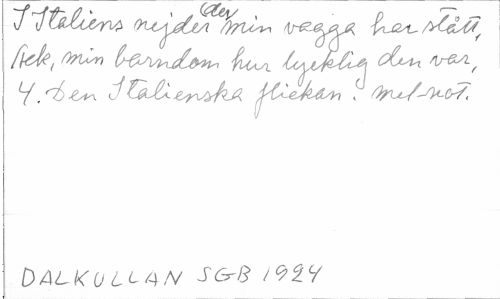 I Italiens nejder der min vagga har stått,
Ack, min barndom hur lycklig den var,
4. Den Italienska flickan. mel-not.
DALKULLAN SGB 1924